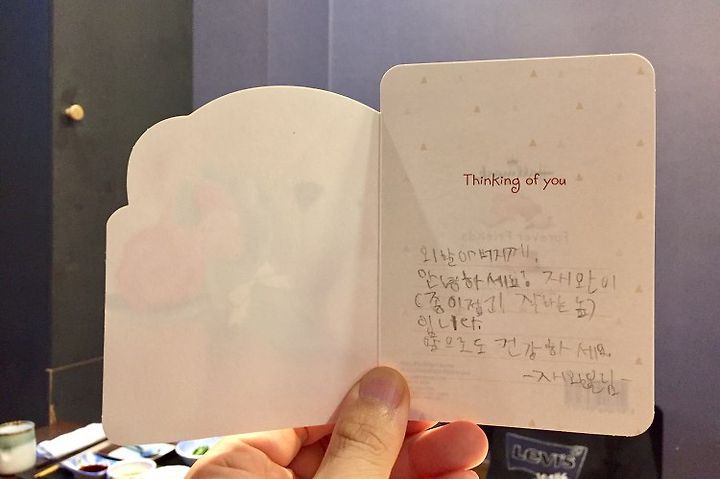 Thinking of you
외할아버지께.
안녕하세요! 재완이
(종이접기 잘하는 놈)
입니다.
앞으로도 건강하세요.
-재완올림-
Forever Friends
LEVI'S